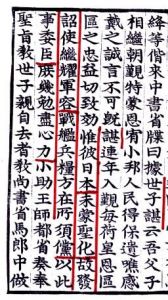 絳等偕行中書省牒曰據世子諶云吾父子
相繼朝覲特蒙恩宥小邦人民得保遺噍感
戴之誠言不可旣諶連年入覲每荷皇恩區
區之忠益切致効惟彼日本未蒙聖化故發
詔使繼耀軍容戰艦兵糧方在所須儻以此
事委臣庶幾勉盡心力小助王師都省奏奉
聖旨敎世子親自去者敎尙書省馬郞中做